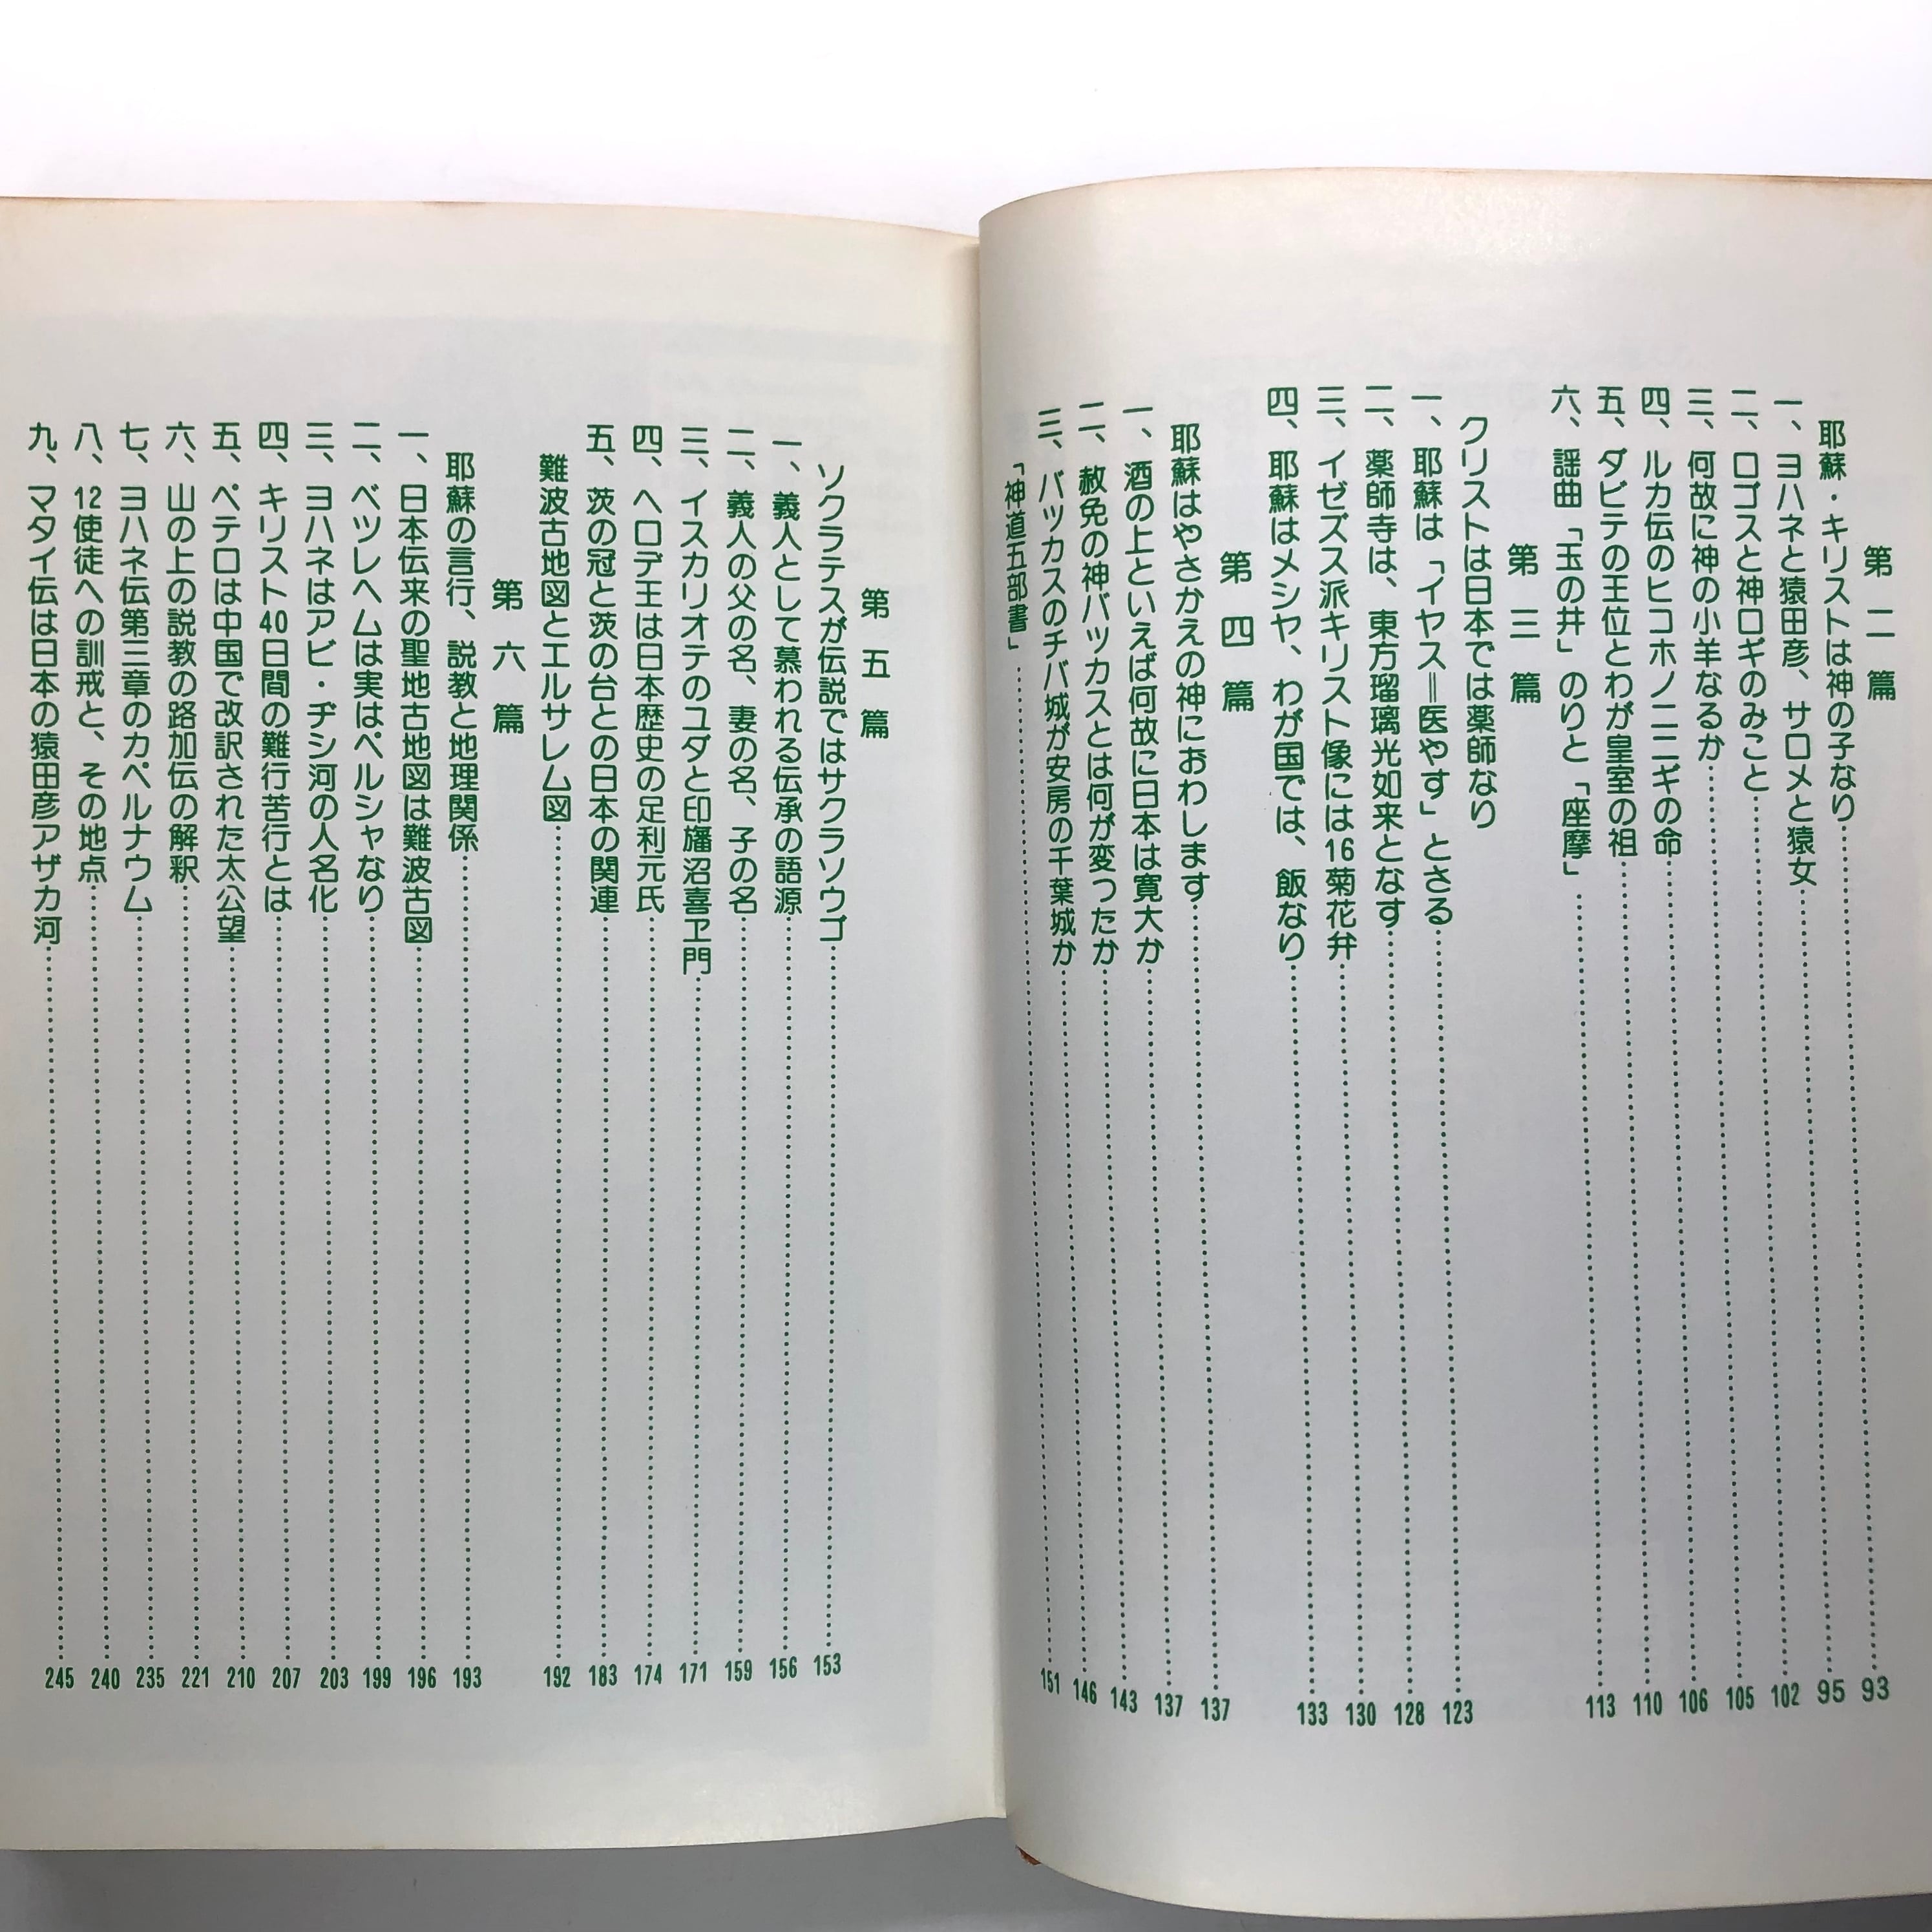 第二篇
耶蘇・キリストは神の子なり……93
一、ヨハネと猿田彦、サロメと猿女……95
二、ロゴスと神ロギのみこと……102
三、何故に神の小羊なるか……105
四、ルカ伝のヒコホノニニギの命……106
五、ダビテの王位とわが皇室の祖……110
六、謡曲「玉の井」のりと「座摩」……113
第三篇
クリストは日本では薬師なり……123
一、耶蘇は「イヤス＝医やす」とさる……128
二、薬師寺は、東方瑠璃光如来となす……130
三、イゼズス派キリスト像には16菊花弁……133
四、耶蘇はメシヤ、わが国では、飯なり……137
第四篇
耶蘇はやさかえの神におわします……137
一、酒の上といえば何故に日本は寛大か……143
二、赦免の神バッカスとは何が変つたか……146
三、バッカスのチバ城が安房の千葉城か……151
「神道五部書」……
第五篇
ソクラテスが伝説ではサクラソウゴ……153
一、義人として慕われる伝承の語源……156
二、義人の父の名、妻の名、子の名……159
三、イスカリオテのユダと印旛沼喜ヱ門……171
四、ヘロデ王は日本歴史の足利元氏……174
五、茨の冠と茨の台との日本の関連……183
難波古地図とエルサレム図……192
第六篇
耶蘇の言行、説教と地理関係……193
一、日本伝来の聖地古地図は難波古図……196
二、ベツレヘムは実はペルシャなり……199
三、ヨハネはアビ・ヂシ河の人名化……203
四、キリスト40日間の難行苦行とは……207
五、ペテロは中国で改訳された太公望……210
六、山の上の説教の路加伝の解釈……221
七、ヨハネ伝第三章のカペルナウム……235
八、12使徒への訓戒と、その地点……240
九、マタイ伝は日本の猿田彦アザカ河……245